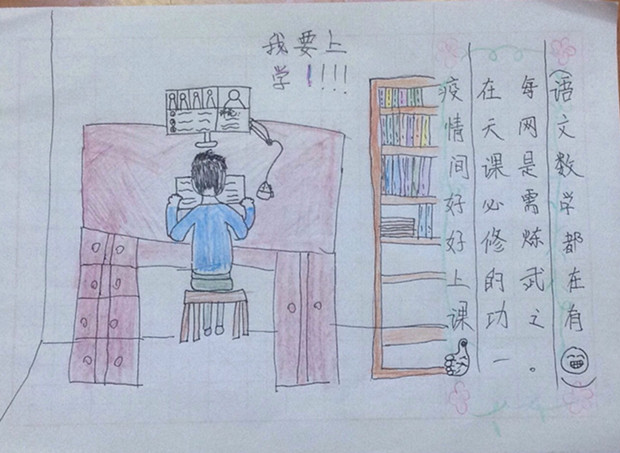 我要上
学!!!!
疫情间好好上课
在每天网课是必需修炼的武功之一。
语文数学都在有